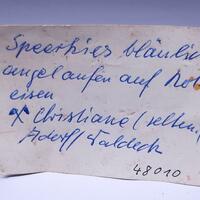 Speerkies bläulich
angelaufen auf Rot
eisen
X Christiane (selten.)
Adorf/Waldeck
48010